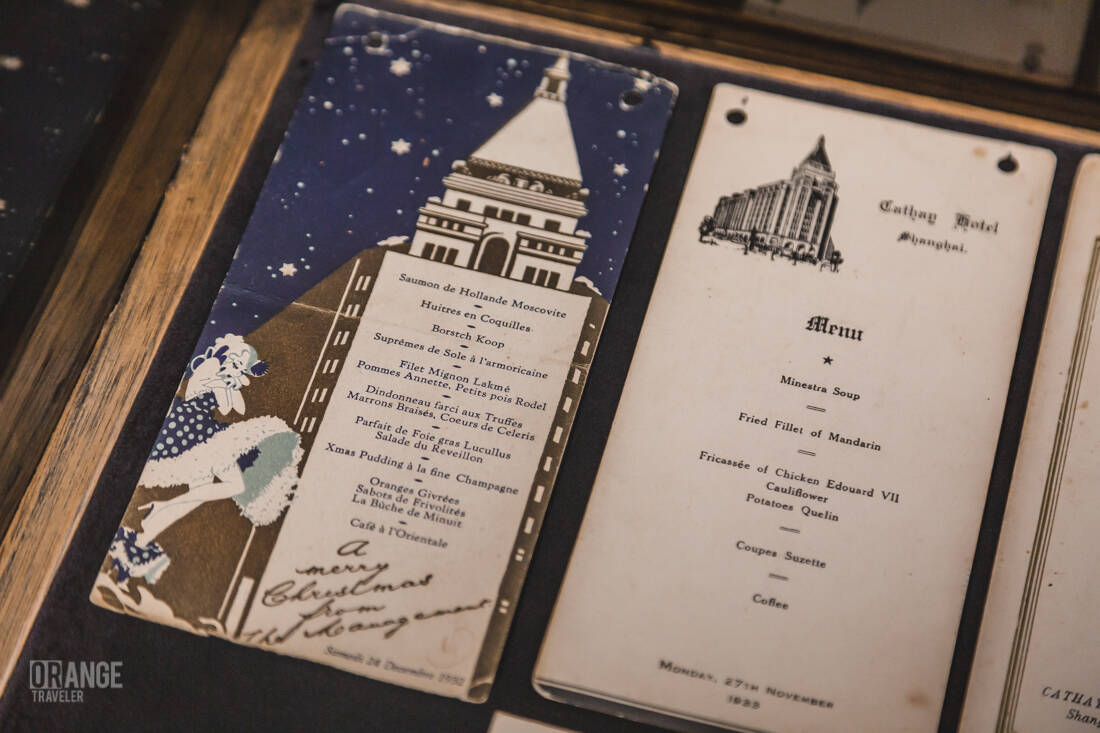 Saumon de Hollande Moscovite
Huitres en Coquilles
Borstch Koop
Suprêmes de Sole à l'armoricaine
Filet Mignon Lakmé
Pommes Annette, Petits pois Rodel
Dindonneau farci aux Truffes
Marrons Braisés, Coeurs de Celeris
Parfait de Foie gras Lucullus
Salade du Reveillon
Xmas Pudding à la fine Champagne
Oranges Givrées
Sabots de Frivolités
La Bûche de Minuit
Café à l'Orientale
A
merry
Christmas
from
The Management
Samedi 24 Decembre 1932
Cathay Hotel
Shanghai.
Menu
Minestra Soup
Fried Fillet of Mandarin
Fricassée of Chicken Edouard VII
Cauliflower
Potatoes Quelin
Coupes Suzette
Coffee
Monday, 27th November
1933
CATHAY
ORANGE
TRAVELER